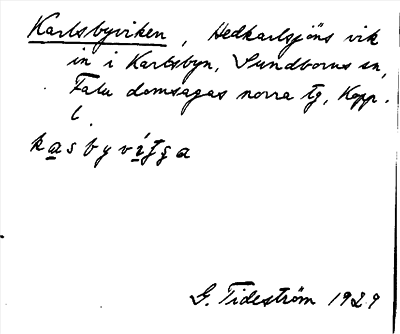 Karlsbyviken, Hedkarlsjöns vik
in i Karlsbyn, Sundborns sn,
Falu domsagas norra tg, Kopp.
l.
kasbyvíʃʒa
G. Tideström 1929